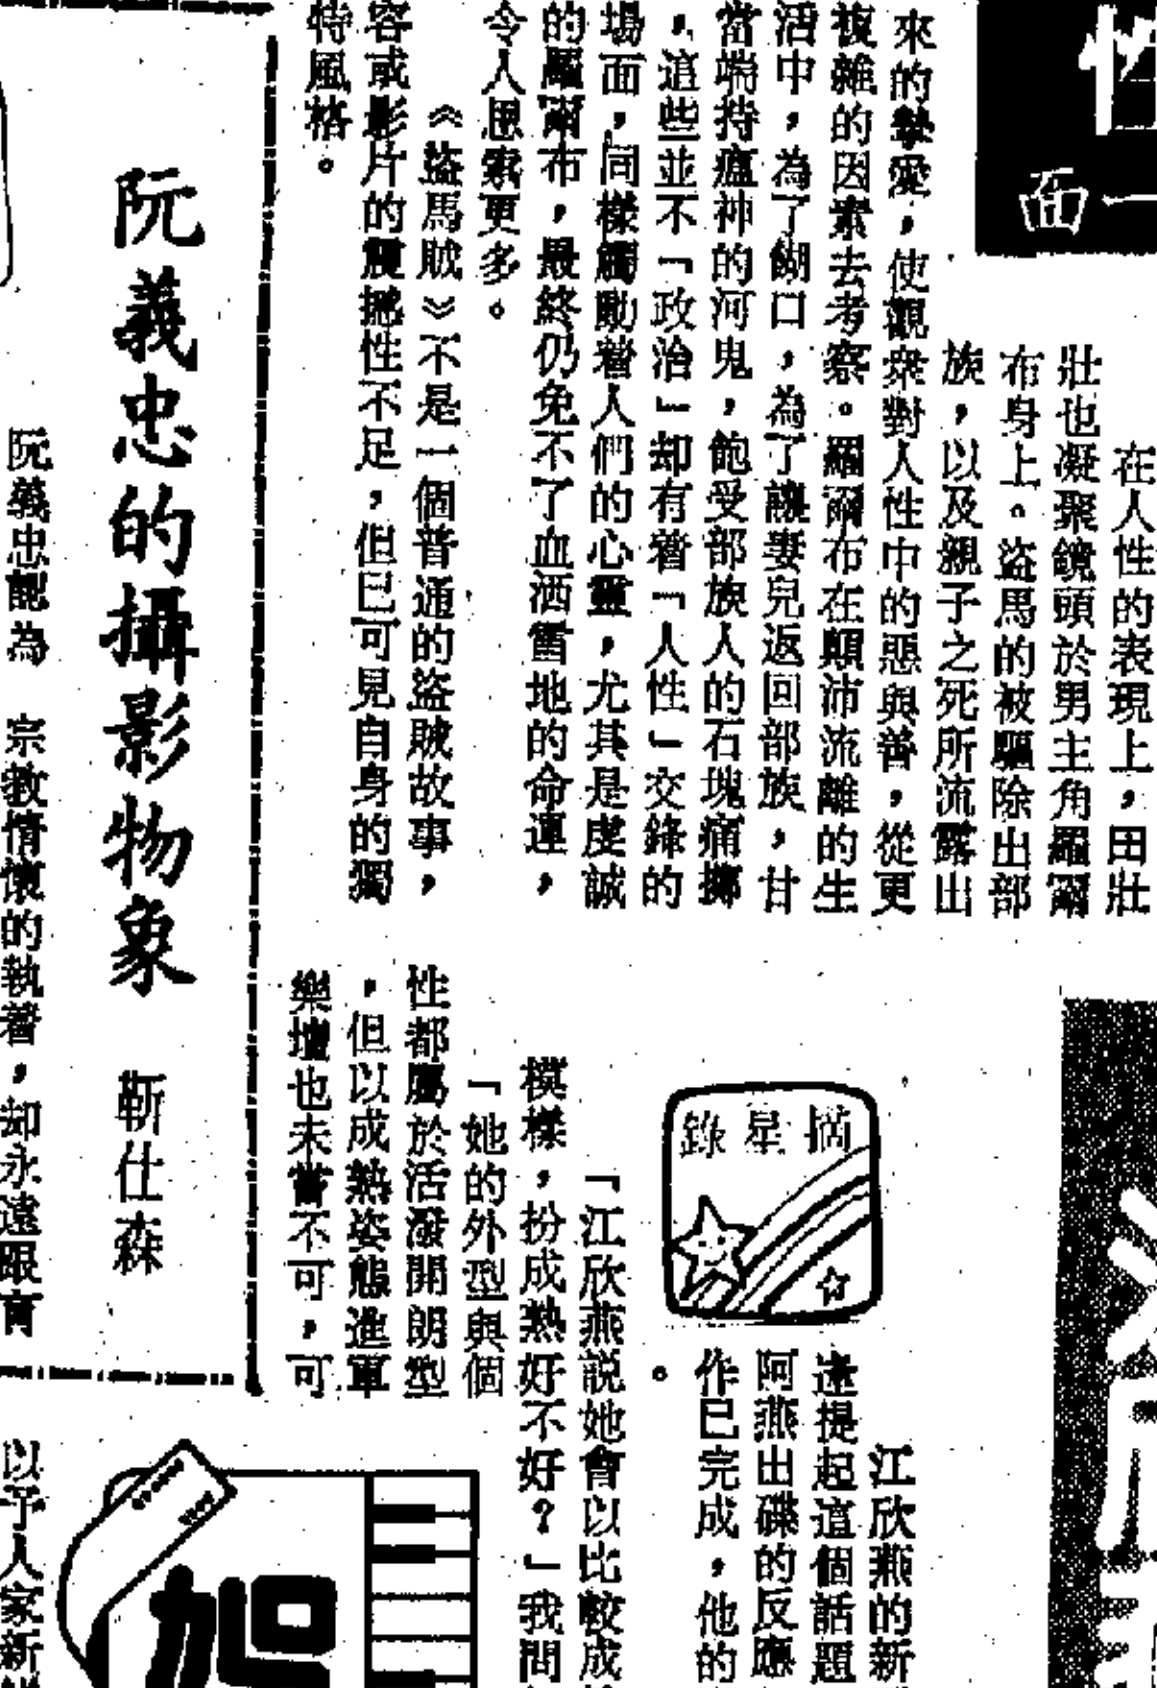 性
一面
在人性的表現上，田壯
壯也凝聚鏡頭於男主角羅爾
布身上。盜馬的被驅除出部
族，以及親子之死所流露出
來的摯愛，使觀衆對人性中的惡與善，從更
複雜的因素去考察。羅爾布在顛沛流離的生
活中，為了餬口，為了讓妻兒返回部族，甘
當端持瘟神的河鬼，飽受部族人的石塊痛擲
，這些並不「政治」却有着「人性」交鋒的
場面，同樣觸動着人們的心靈，尤其是虔誠
的羅爾布，最終仍免不了血洒雪地的命運，
令人思索更多。
《盜馬賊》不是一個普通的盜賊故事，
容或影片的震撼性不足，但已可見自身的獨
特風格。
阮義忠的攝影物象
靳仕森
阮義忠認為 宗教情懷的執着，却永遠眼
摘星錄
江欣燕的新
達提起這個話題
阿燕出碟的反應
作已完成，他的
。
「江欣燕説她會以比較成
模樣，扮成熟好不好？」我問
「她的外型與個
性都屬於活潑開朗型
，但以成熟姿態進軍
樂壇也未嘗不可，可
以予人家新